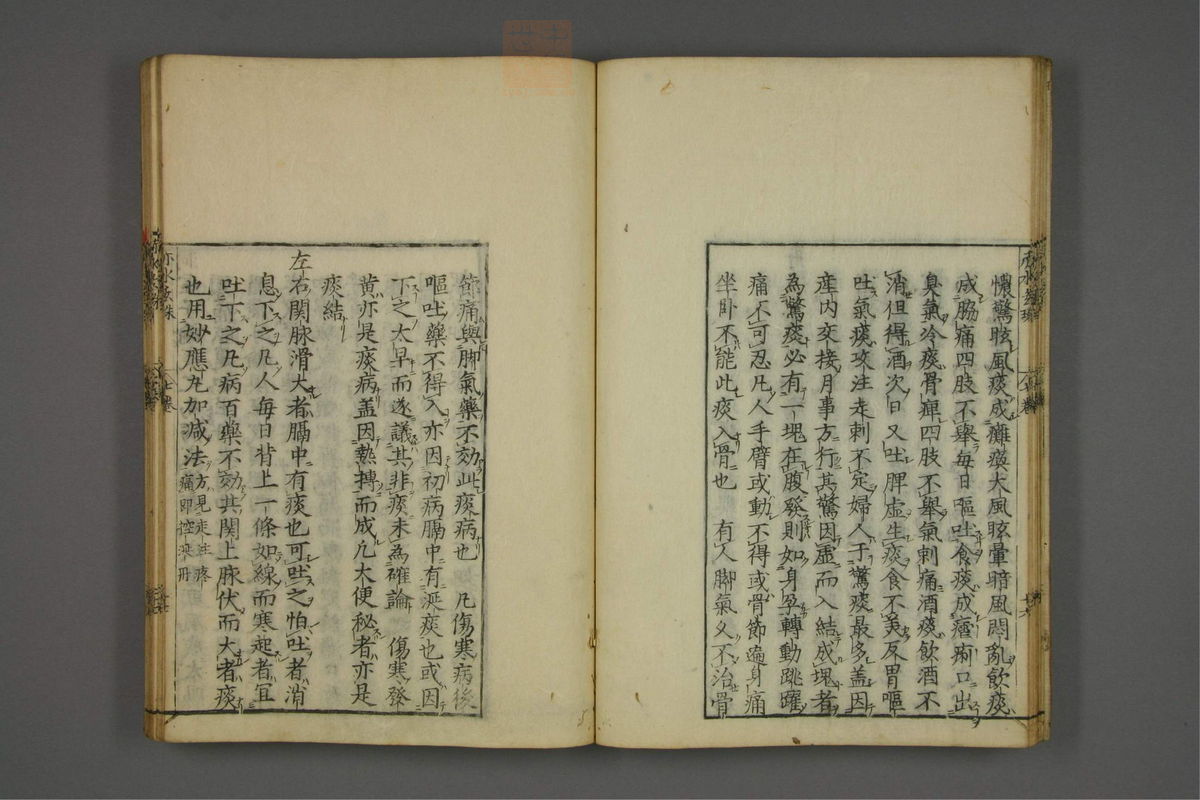 懊驚眩風痰成癱瘓大風眩暈暗風悶亂飲痰
成脇痛四肢不舉每日嘔吐食痰成瘧痢口出
臭氣冷痰骨痺四肢不舉氣刺痛酒痰飲酒不
消但得酒次日又吐脾虛生痰食不美反胃嘔
吐氣痰攻注走刺不定婦人于驚痰最多盖因
産内交接月事方行其驚因虛而入結成塊者
為驚痰必有一塊在腹發則如身孕轉動跳躍
痛不可忍凡人手臂或動不得或骨節遍身痛
坐卧不能此痰入骨也 有人脚氣久不治骨
節痛與脚氣藥不効此痰病也 凡傷寒病後
嘔吐藥不得入亦因初病膈中有涎痰也或因
下之太早而遂議其非痰未為確論 傷寒發
黄亦是痰病盖因熱搏而成凡大便秘者亦是
痰結
左右関脉滑大者膈中有痰也可吐之怕吐者消
息下之凡人每日背上一條如線而寒起者宜
吐下之凡病百藥不効其関上脉伏而大者痰
也用妙應丸加减法方見走注疼
痛即控涎丹